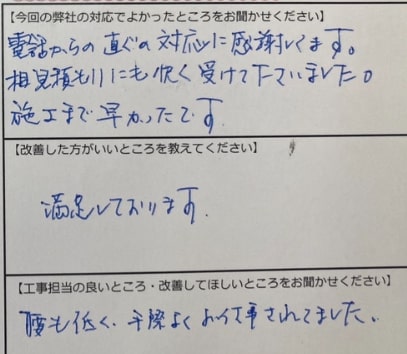 【今回の弊社の対応でよかったところをお聞かせください】
電話からの直ぐの対応に感謝してます。
相見積もりにも快く受けて下さいました。
施工まで早かったです。
【改善した方がいいところを教えてください】
満足しております.
【工事担当の良いところ・改善してほしいところをお聞かせください】
腰も低く、手際よくお仕事されてました、